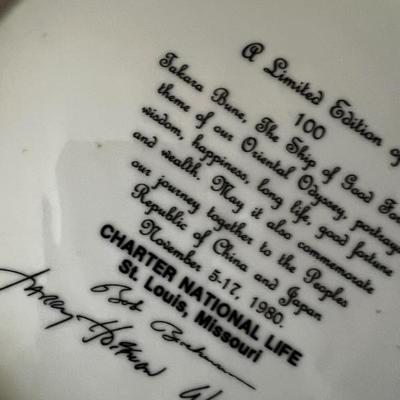 A Limited Edition of
100
Takara Bune, The Ship of Good For
theme of our Oriental Odyssey, portrays
wisdom, happiness, long life, good fortune
and wealth. May it also commemorate
our journey together to the Peoples
Republic of China and Japan
November 5-17, 1980.
CHARTER NATIONAL LIFE
St. Louis, Missouri
Bob